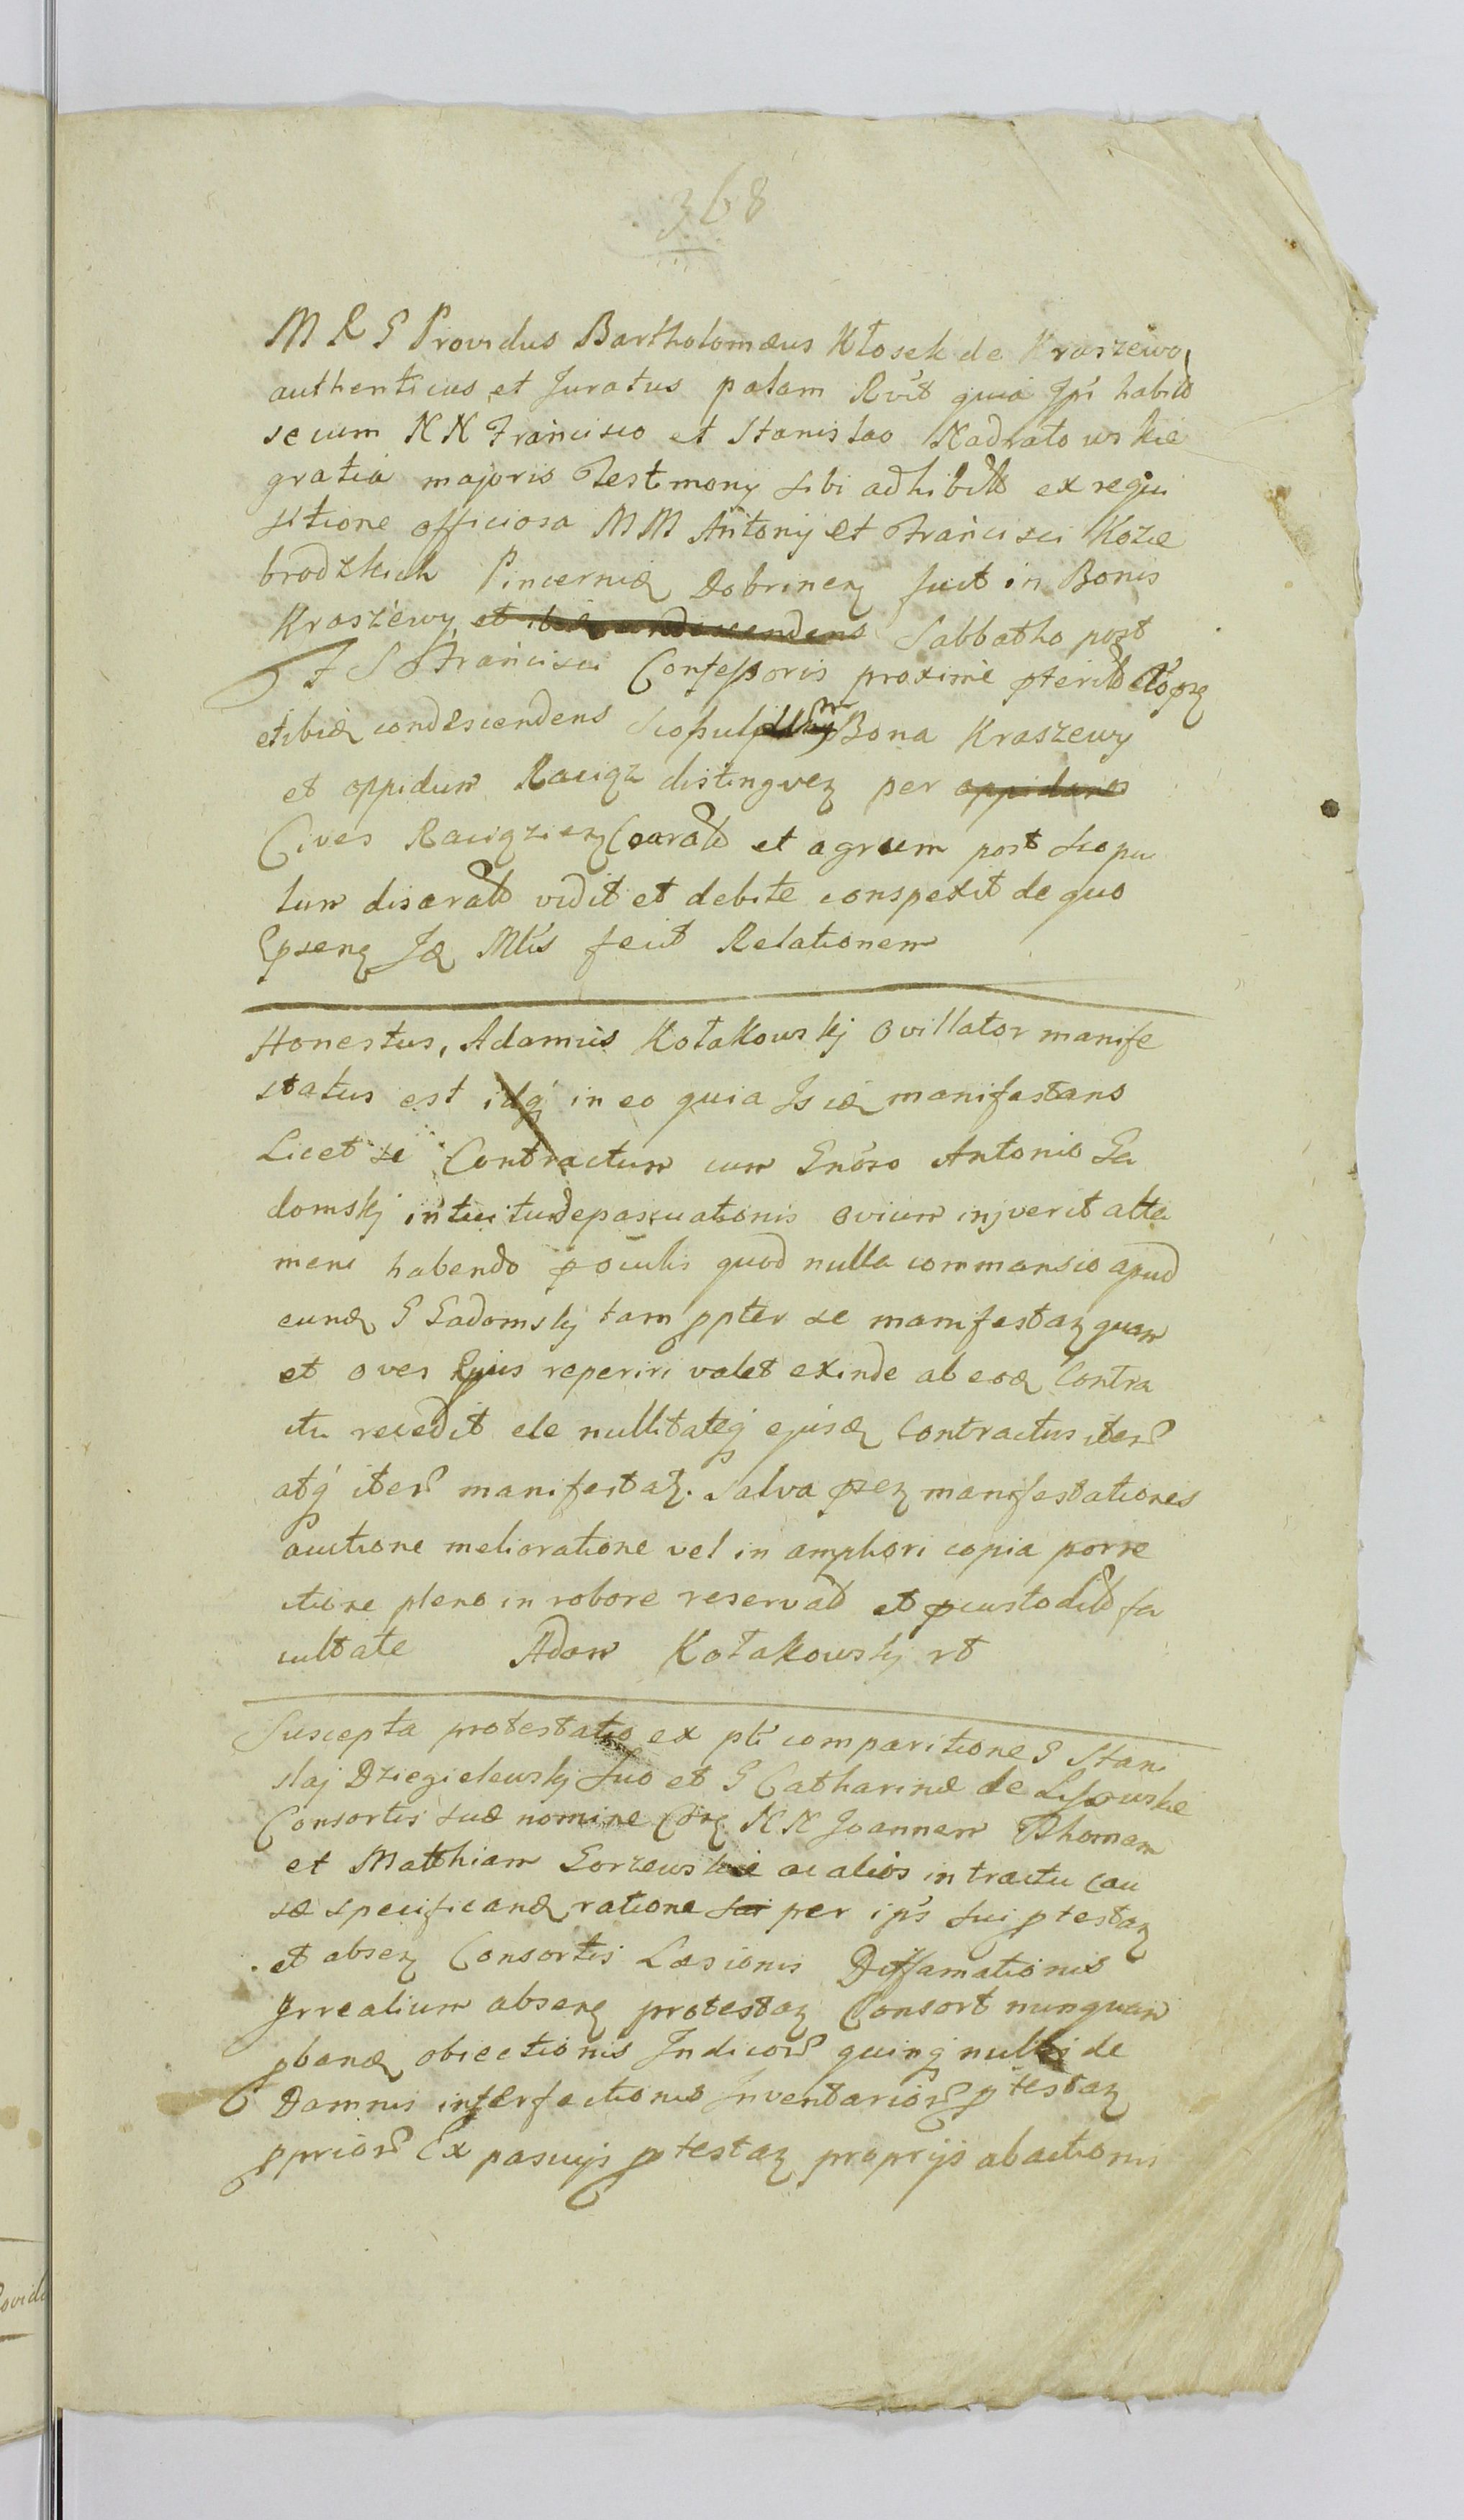 368
M R G Providus Bartholomæus Kłosek de Kraszewo
authenticus et Juratus palam Rvit quia Ipi habit
secum NN Francisco et Stanislao Nadratowskie
gratia majoris Testimony sibi adhibit ex requi
sitione officiosa MM Antonij et Francisci Kozie
brodzkich Pincernid Dobrinen fuit in Bonis
Kraszewy Sabbatho post
F S Francisci Confessoris proxime pterit
et ibid condescendens Scopul Bona Kraszewy
et oppidum Raciąz distingven per oppidanos
Cives Raciązien Coarat et agrum post Scopu
lum disarat vidit et debite conspexit de quo
Epsens Jd Mtis fecit Relationem
Honestus, Adamus Kołakowskj Ovillator manife
status est idq in eo quia Is id manifestans
Licet se Contractum cum Gnoso Antonio Ga
domskj intuitu depascuationis ovium injverit atta
men habendo p oculis quod nulla commansio apud
eund G Gadomskj tam ppter se manifestan quam
et oves Ejus reperiri valet exinde ab eod Contra
ctu recedit ele nullitateq ejusd Contractus iter
atq iter manifestat. Salva psen manifestationes
auctione melioratione vel in ampliori copia porre
ctione pleno in robore reservat et p custodit fa
cultate Adam Kołakowskj rt
Suscepta protestatio ex pti comparitione G Stani
slaj Dziegielewskj suo et G Catharinæ de Lissowskie
Consortis suæ nomine Con NN Joannem Thomam
et Matthiam Gorzewskie ac alios in tractu cau
sæ specificand ratione sui per ips sui ptestan
et absen Consortis Læsionis Diffamationis
Irrealium absen protestan Consort nunquam
pband obiectionis Indicor quinq nulli de
Damnis interfectionis Inventarior ptestan
pprior Ex pascuijs ptestan proprijs abactionis